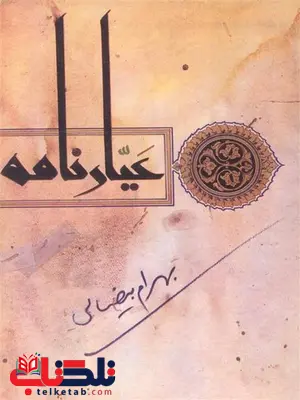 عیّارنامه
بهرام بیضائی
تلکتاب
telketab.com